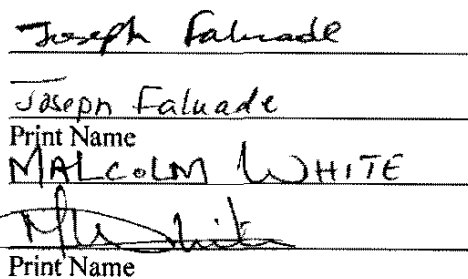 Joseph Faluade
Joseph Faluade
Print Name
MALCOLM WHITE
M White
Print Name